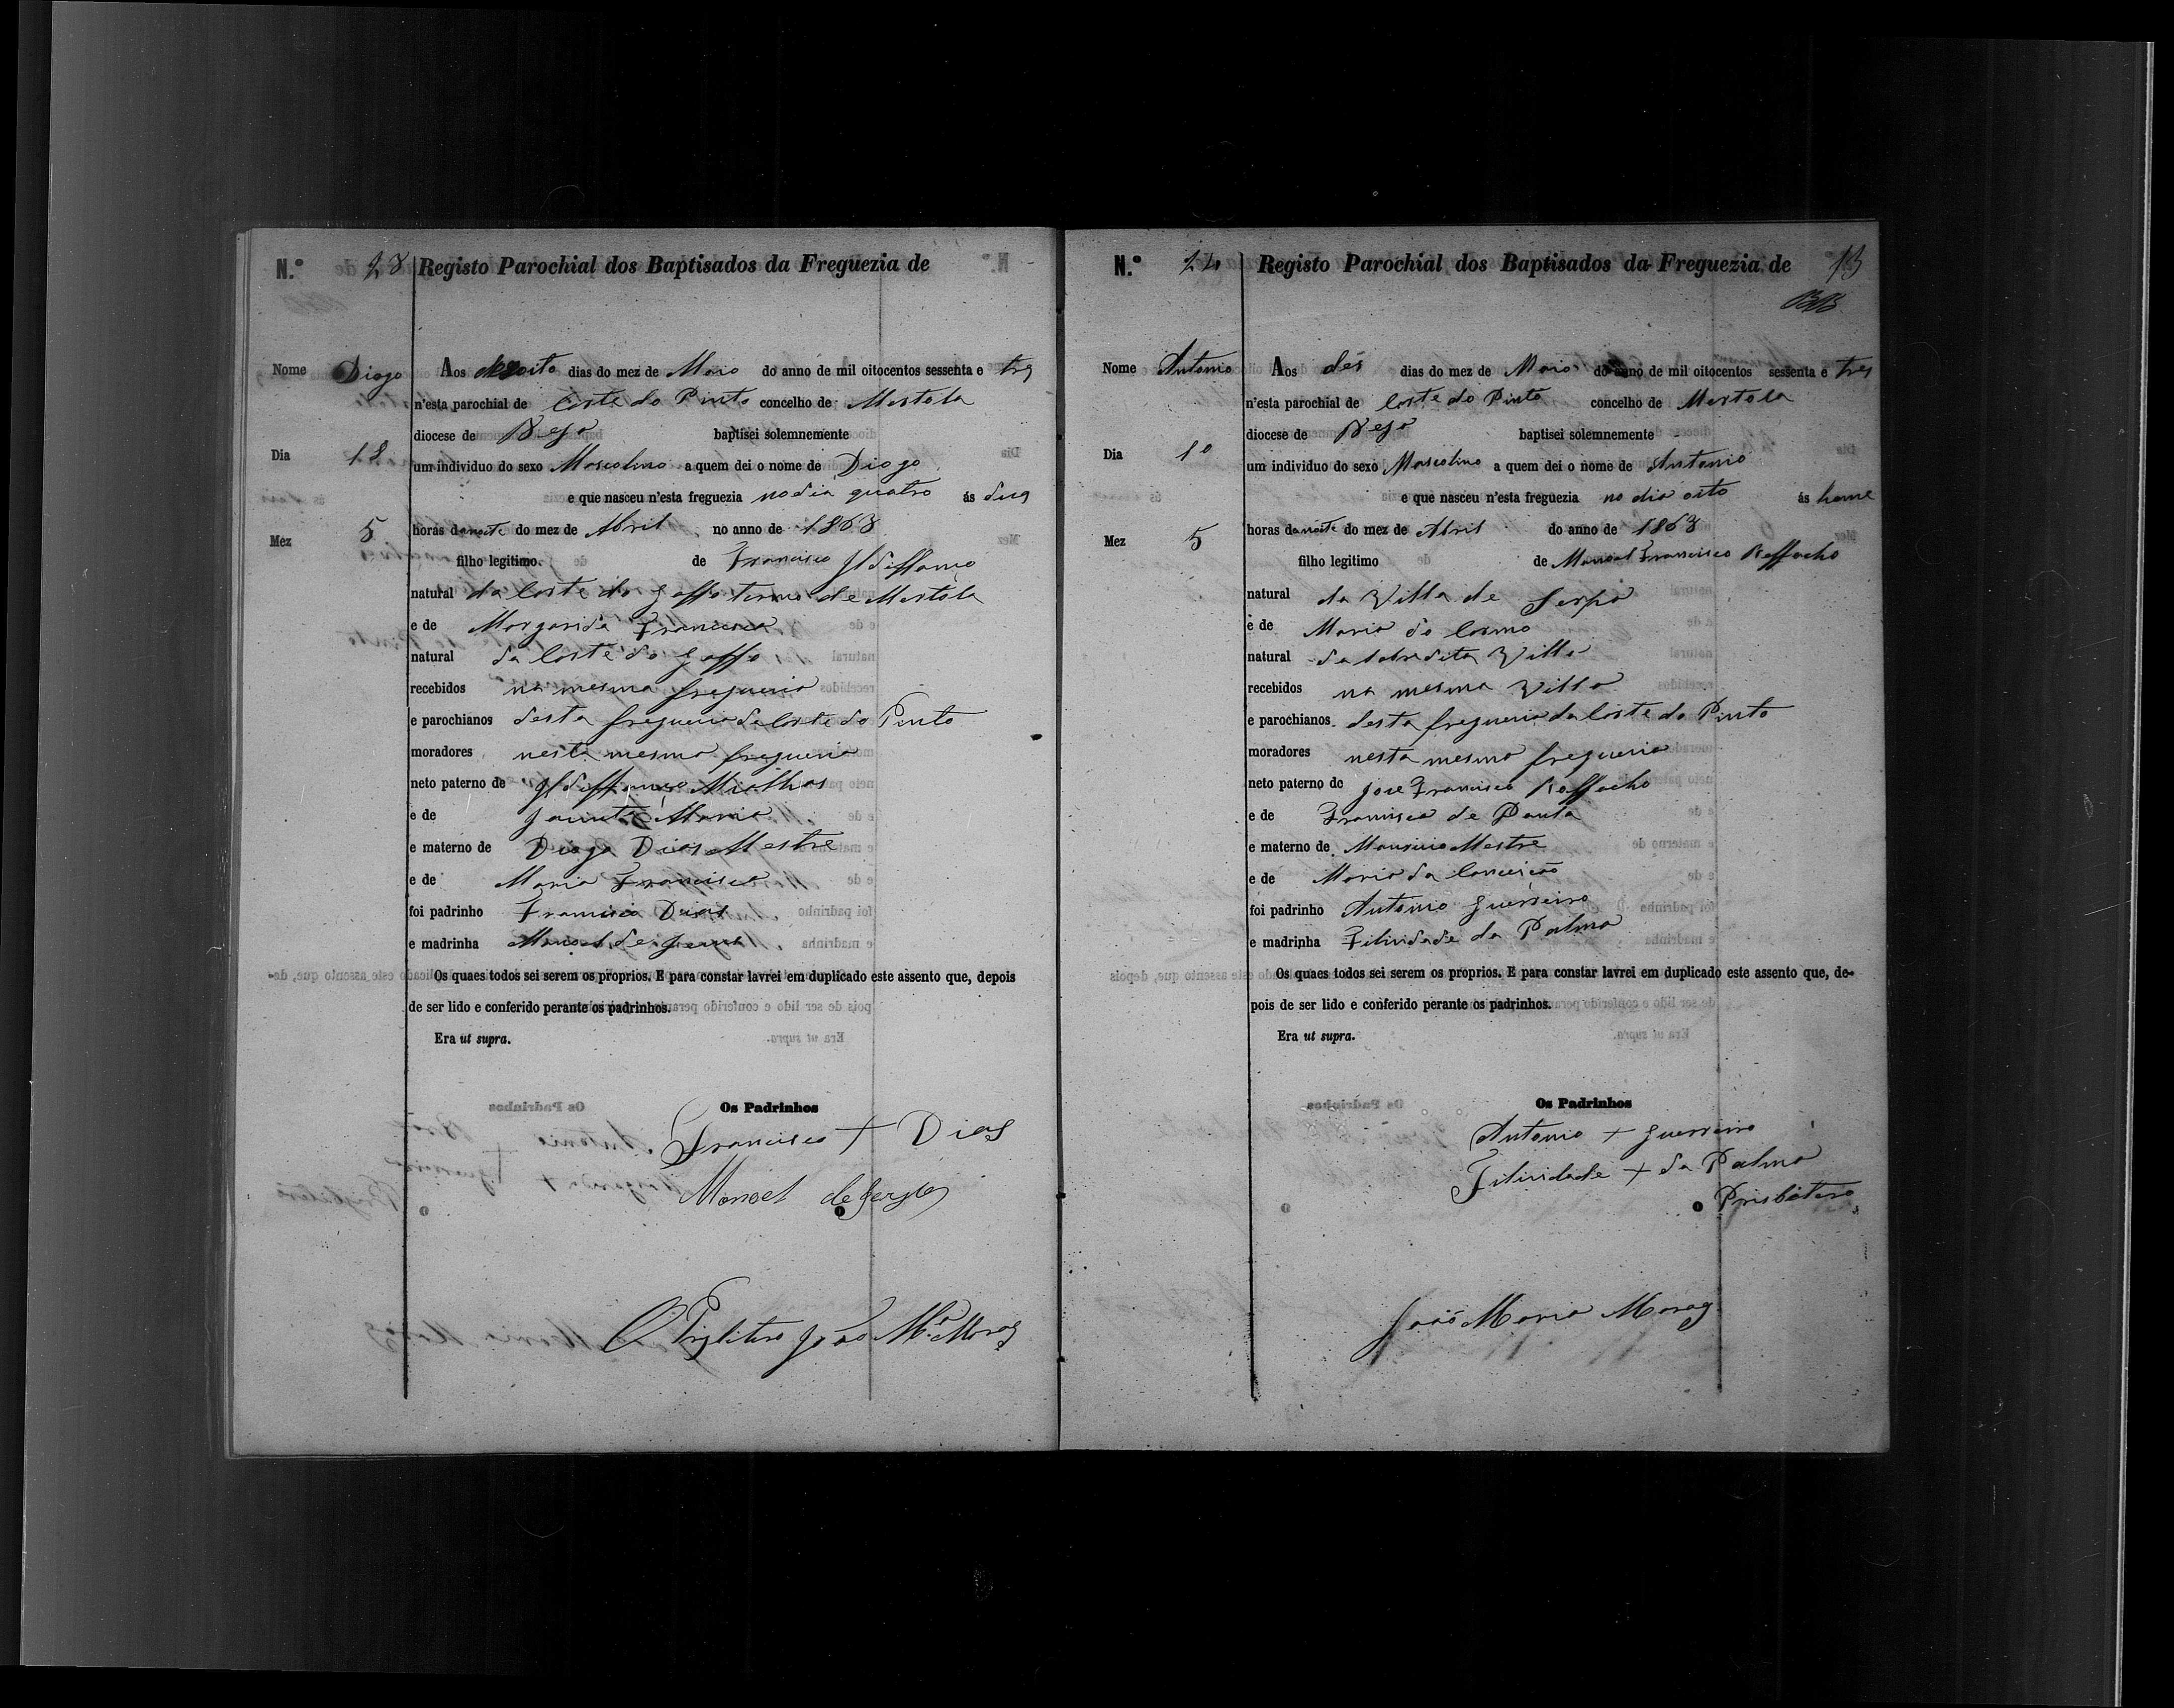 N.º 23 Registo Parochial dos Baptisados da Freguezia de
Nome Diogo Aos desoito dias do mez de Maio do anno de mil oitocentos sessenta e tres
n'esta parochial de Corte do Pinto concelho de Mertola
diocese de Beja baptisei solemnemente
Dia 18 um individuo do sexo Mascolino a quem dei o nome de Diogo
e que nasceu n'esta freguezia no dia quatro ás duas
Mez 5 horas da noite do mez de Abril no anno de 1863
filho legitimo de Francisco Ildeffonço
natural da Corte do Gaffo termo de Mertola
e de Margarida Francisca
natural da Corte do Gaffo
recebidos na mesma fregueria
e parochianos desta fregueria da Corte do Pinto
moradores nesta mesma fregueria
neto paterno de Ildeffonço Mialhas
e de Jacinta Maria
e materno de Diogo Dias Mestre
e de Maria Francisca
foi padrinho Francisco Dias
e madrinha Manoel de Jesus
Os quaes todos sei serem os proprios. E para constar lavrei em duplicado este assento que, depois
de ser lido e conferido perante os padrinhos.
Era ut supra.
Os Padrinhos
Francisco + Dias
Manoel de
O
O Prisbitero João M.ª Moraes
N.º 24 Registo Parochial dos Baptisados da Freguezia de 13
Nome Antonio Aos dés dias do mez de Maio do anno de mil oitocentos sessenta e tres
n'esta parochial de Corte do Pinto concelho de Mertola
diocese de Beja baptisei solemnemente
Dia 10 um individuo do sexo Mascolino a quem dei o nome de Antonio
e que nasceu n'esta freguezia no dia oito ás
Mez 5 horas da noite do mez de Abril do anno de 1863
filho legitimo de Manoel Francisco Raffacho
natural da Villa de Serpa
e de Maria do Carmo
natural da sobredita Villa
recebidos na mesma Villa
e parochianos desta fregueria da Corte do Pinto
moradores nesta mesma fregueria
neto paterno de Jose Francisco Raffacho
e de Francisca de Paula
e materno de Mauricio Mestre
e de Maria da Conceição
foi padrinho Antonio Guerreiro
e madrinha Filividade da Palma
Os quaes todos sei serem os proprios. E para constar lavrei em duplicado este assento que, de-
pois de ser lido e conferido perante os padrinhos.
Era ut supra.
Os Padrinhos
Antonio + Guerreiro
Filividade + da Palma
O Prisbitero
João Maria Moraes